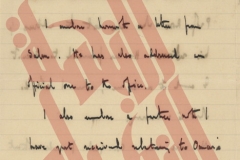 I enclose herewith a letter from
Salem. He has also addressed an
official one to the Govt.
I also enclose a further note I
have just received relating to Omani